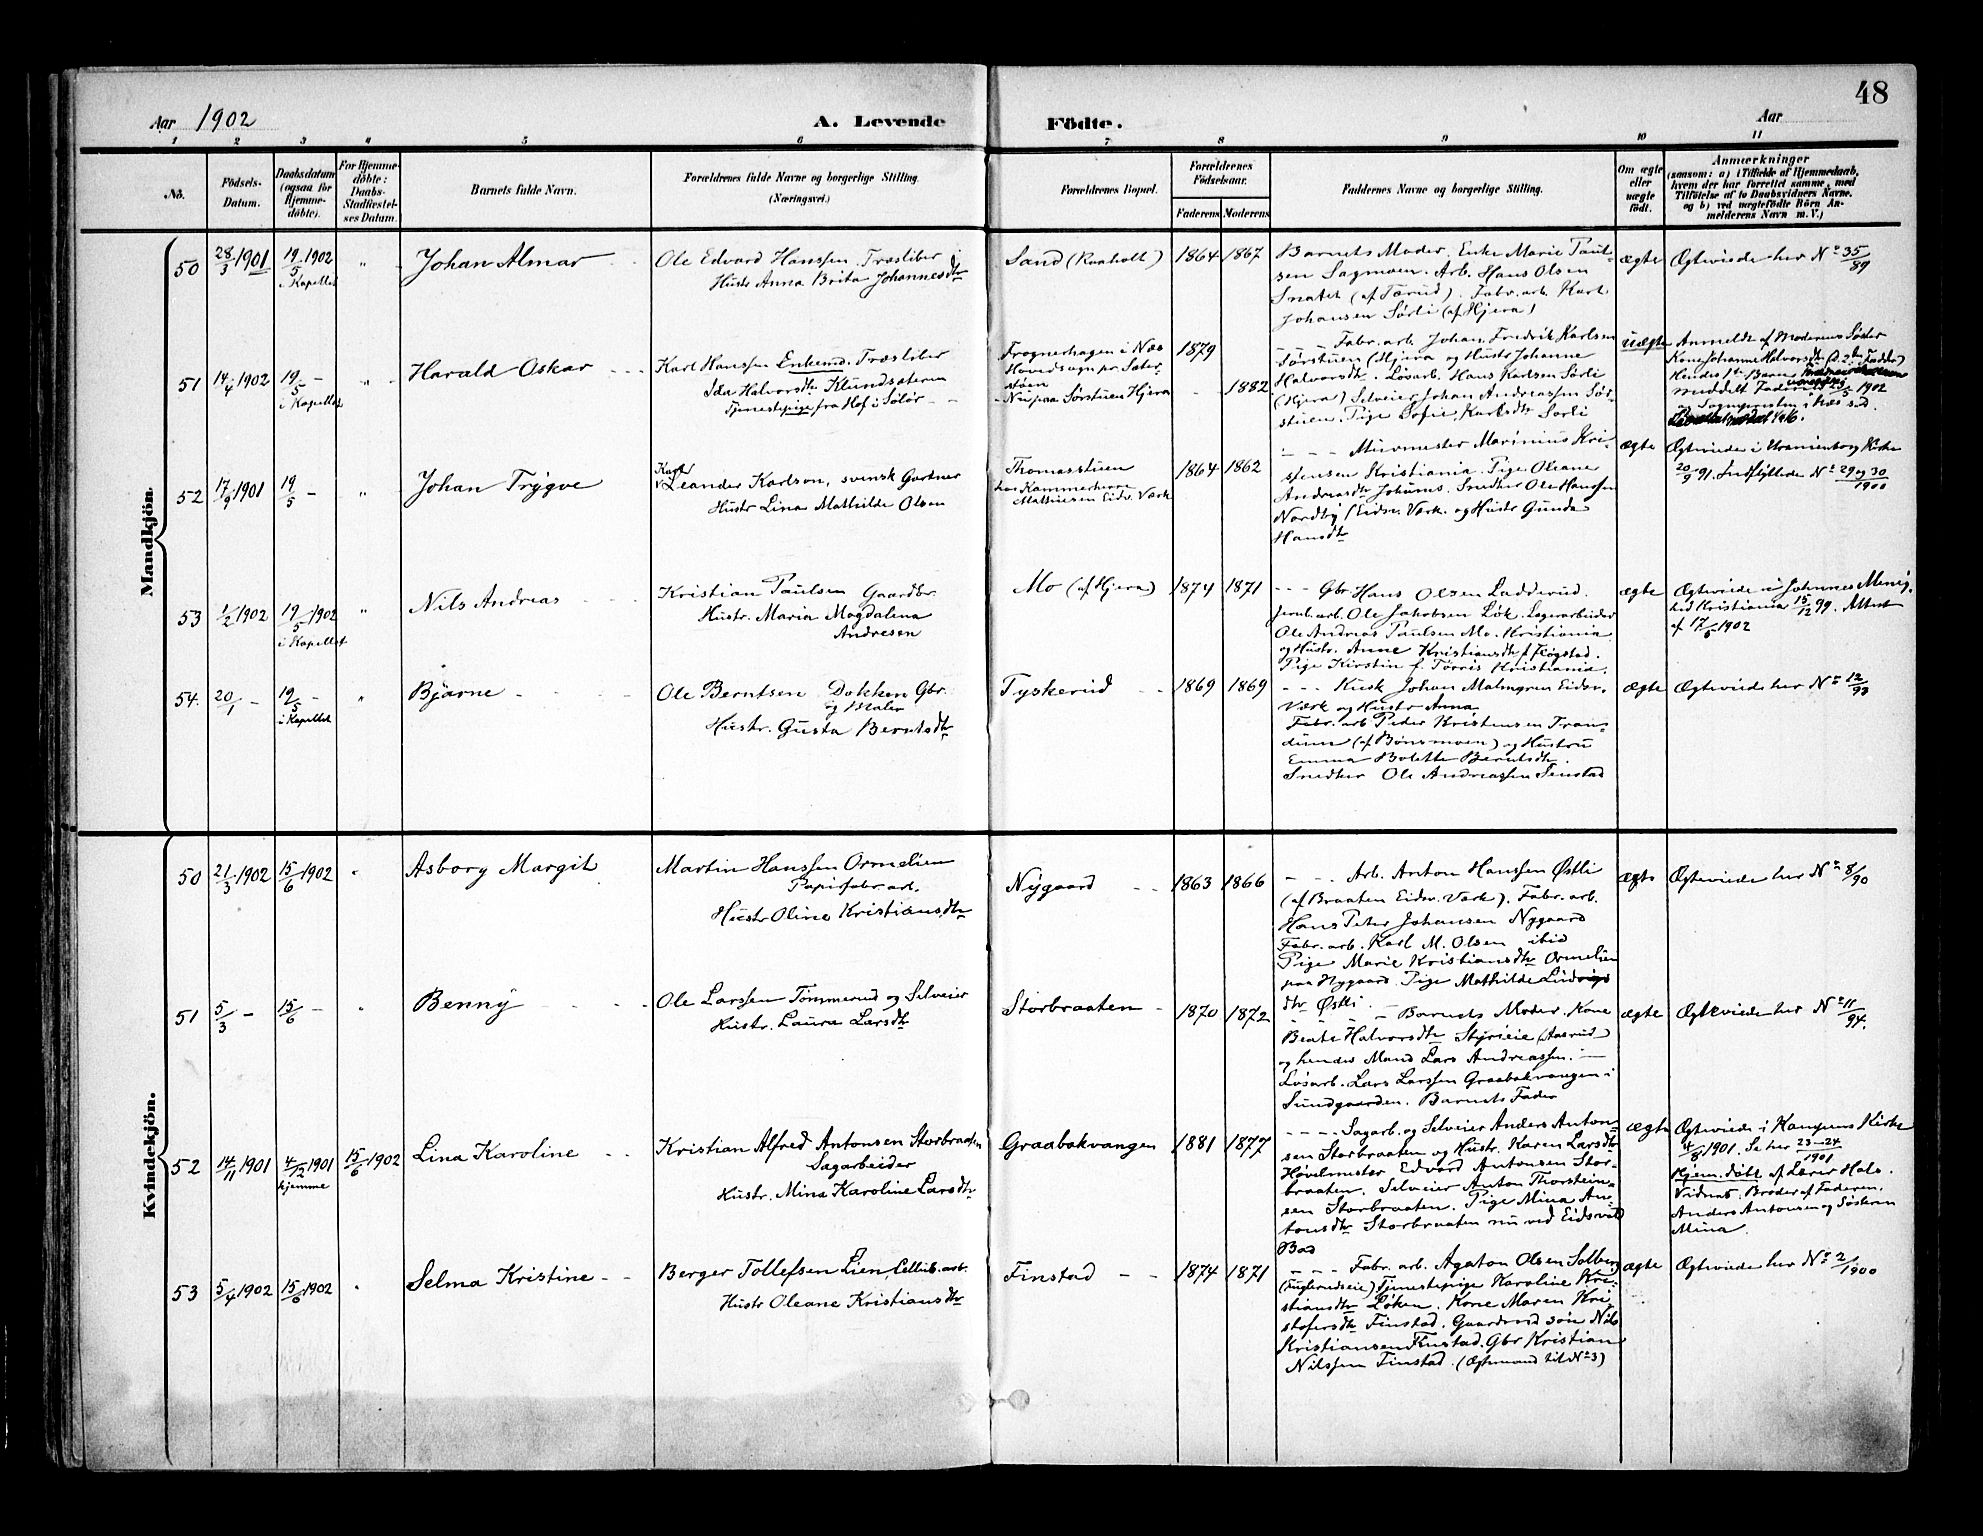 48
Aar 1902
A. Levende Födte.
Aar
1 2 3 4 5 6 7 8 9 10 11
No.
Födsels-Datum.
Daabsdatum (ogsaa for Hjemme-döbte).
For Hjemme-döbte: Daabs-Stadfæstel-ses Datum.
Barnets fulde Navn.
Forældrenes fulde Navne og borgerlige Stilling. (Næringsvei.)
Forældrenes Bopæl.
Forældrenes Födselsaar.
Faderens Moderens
Faddernes Navne og borgerlige Stilling.
Om ægte eller uægte födt.
Anmærkninger
(saasom: a) i Tilfælde af Hjemmedaab, hvem der har forrettet samme, med Tilföielse af to Daabsvidners Navne, og b) ved uægtefödte Börn An-melderens Navn m. V.)
Mandkjön.
50 28/3 1901 19/5 1902 i Kapellet " Johan Almar
Ole Edvard Hanssen Træsliber
Hustr Anna Brita Johannesdtr
Sand (Raaholt) 1864 1867
Barnets Moder. Enke Marie Paul-
sen Sagmoen. Arb. Hans Olsen
(af Tærud). Fabr. arb. Karl
Johansen Sørli (af Hjera)
ægte Ægteviede her No 35/89
51 14/4 1902 19/5 - i Kapellet " Harald Oskar
Karl Hanssen Enkemd. Træsliber
Ida Halvorsdtr Klundsæteren
Tjenestepige fra Hof i Solør
Frognerhagen i Næs
Hovedsogn pr. Sæter-
støen
Nu paa Sørstuen Hjera
1879 1882
- - - Fabr. arb. Johan Fredrik Karlsen
Sørstuen (Hjera og Hustr Johanne
Halvorsdtr. Løsarb. Hans Karlsen Sørli
(Hjera) Selveier Johan Andreassen Sør-
stuen. Pige Sofie Karlsdtr Sørli
uægte Anmeldt af Moderens Søster
Kone Johanne Halvorsdtr (d. 2den Fadder)
Hendes 1ste Barn
meddelt Faderen 1902
og Sognepresten i Næs s.d.
52 17/9 1901 19/5 - " Johan Trygve
Karl
Leander Karlson, svensk Gartner
Hustr Lina Mathilde Olsen
Thomasstuen
hos Kammerherre
Mathiesen Eidsv. Værk
1864 1862
- - - Murmester Marinius Kri-
stensen Kristiania. Pige Oleane
Andreasdtr Johanns. Snedker Ole Hanssen
Nordby (Eidsv. Værk. og Hustr Gunda
Hansdtr
ægte Ægteviede i Uranienborg Kirke
20/9 91. Indflyttede No 29 og 30/1900
53 1/2 1902 19/5 1902 i Kapellet " Nils Andreas
Kristian Paulsen Gaardbr.
Hustr. Maria Magdalena
Andresen
Mo (af Hjera) 1874 1871
- - - Gbr Hans Olsen Ladderud.
Jernb. arb. Ole Jakobsen Løk. Lagerarbeider
Ole Andreas Paulsen Mo. Kristiania
og Hustr. Anne Kristiansdtr f. Fløgstad.
Pige Kirstin f. Torris Kristiania.
ægte Ægteviede i Johannes Menig.
hed Kristiania 15/12 99. Attest
af 17/5 1902
54. 20/1 - 19/5 - i Kapellet " Bjarne
Ole Berntsen Dokken Gbr.
og Maler
Hustr. Gusta Berntsdtr
Tyskerud 1869 1869
- - - Kusk Johan Malmgren Eidsv.
Værk og Hustr Anna
Fabr. arb Peder Kristensen Tran-
dum (af Bønsmoen) og Hustru
Emma Bolette Berntsdtr.
Snedker Ole Andreassen Finstad
ægte Ægteviede her No 12/93
Kvindekjön.
50 21/3 1902 15/6 1902 " Asborg Margit
Martin Hanssen Ormelien
Papirfabr. arb.
Hustr Oline Kristiansdtr
Nygaard 1863 1866
- - - Arb. Anton Hanssen Østli
(af Braaten Eidsv. Værk). Fabr. arb.
Hans Peter Johansen Nygaard
Fabr. arb. Karl M. Olsen ibid
Pige Marie Kristiansdtr Ormelien
paa Nygaard. Pige Mathilde Ludvigs
dtr Østli.
ægte Ægteviede her No 8/90
51 5/3 - 15/6 - " Benny
Ole Larssen Tømmerud og Selveier
Hustr. Laura Larsdtr
Storbraaten 1870 1872
- - - Barnets Moder. Kone
Beate Halvorsdtr Styrieie (Aasrud
og hendes Mand Lars Andreassen. -
Løsarb. Lars Larssen Graabakvangen i
Sundgaarden. Barnets Fader
ægte Ægteviede her No 11/94.
52 14/11 1901 4/12 1901 hjemme 15/6 1902 Lina Karoline
Kristian Alfred Antonsen Storbraaten
Sagarbeider
Hustr. Mina Karoline Larsdtr
Graabakvangen 1881 1877
- - - - Sagarb. og Selveier Anders Anton-
sen Storbraaten og Hustr. Karen Larsdtr
Høvelmester Edvard Antonsen Stor-
braaten. Selveier Anton Thorstein-
sen Storbraaten. Pige Mina An-
tonsdtr Storbraaten nu ved Eidsvold
Bad
ægte Ægteviede i Kampens Kirke
4/8 1901. Se her 23-24/1901
Hjem. døbt af Lærer Hals.
Vidner: Broder af Faderen,
Anders Antonsen og Søsteren
Mina.
53 5/4 1902 15/6 1902 " Selma Kristine
Berger Tollefsen Lien, Cellul. arb.
Hustr Oleane Kristiansdtr
Finstad 1874 1871
- - - Fabr. arb. Agaton Olsen Solberg
(Fuglerudseie) Tjenestepige Karoline Kri-
stiansdtr Løken. Kone Maren Kri
stofersdtr Finstad. Gaardmd søn Nils
Kristiansen Finstad. Gbr Kristian
Nilssen Finstad. (Ægtemand til No 3)
ægte Ægteviede her No 2/1900